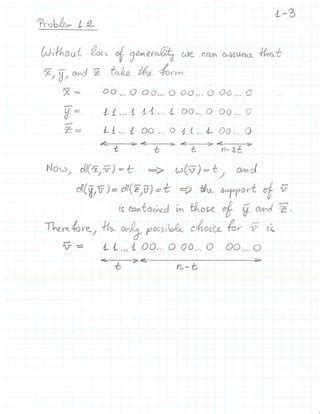 1-3
Problem 1.2
Without loss of generality we can assume that
x̄, ȳ, and z̄ take the form
x̄ = 00...0 00...0 00...0 00...0
ȳ = 11...1 11...1 00...0 00...0
z̄ = 11...1 00...0 11...1 00...0
t t t n-3t
Now, d(x̄,v̄)=t ⇒ w(v̄)=t, and
d(ȳ,v̄)=d(z̄,v̄)=t ⇒ the support of v̄
is contained in those of ȳ and z̄.
Therefore, the only possible choice for v̄ is
v̄ = 11...1 00...0 00...0 00...0
t n-t